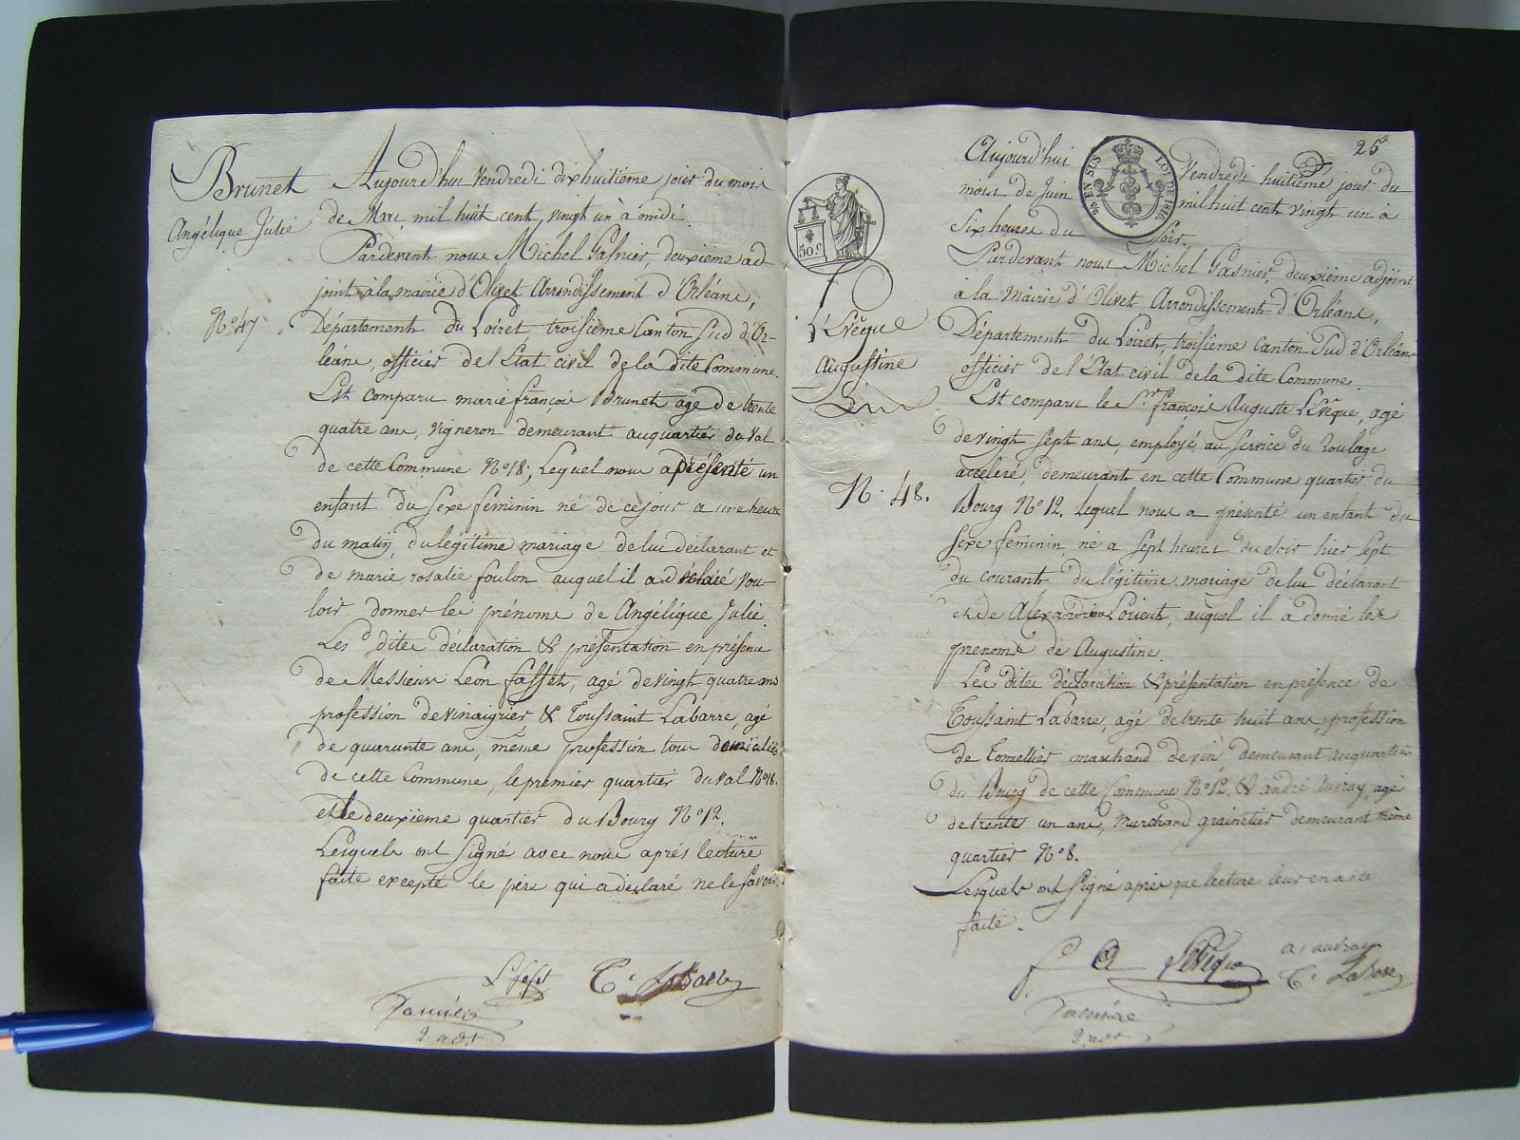 Brunet
Angélique Julie
N.° 47
Aujourd'hui vendredi dixhuitième jour du mois
de Mai mil huit cent vingt un à midi
Pardevant nous Michel Gasnier, deuxième ad
joint à la mairie d'Olivet Arrondissement d'Orléans,
Département du Loiret troisième Canton Sud d'Or-
léans, officier de l'Etat civil de la dite Commune.
Est comparu marie françois Brunet agé de trente
quatre ans, vigneron demeurant au quartier du val
de cette Commune N.° 18, Lequel nous a présenté un
enfant du sexe féminin né de ce jour a une heure
du matin, du légitime mariage de lui déclarant et
de marie rosalie foulon auquel il a déclaré vou-
loir donner les prénoms de Angélique Julie.
Les dites déclaration & présentation en présence
de Messieurs Léon fasset, agé de vingt quatre ans
profession de vinaigrier & Toussaint Labarre, agé
de quarante ans, même profession tous domiciliés
de cette Commune, le premier quartier du val N° 18.
et le deuxième quartier du Bourg N.° 12.
Lesquels ont signé avec nous après lecture
faite excepté le père qui a déclaré ne le savoir.
25
EN SUS
LOI DE 1816
50 c
L'Evêque
Augustine
N.° 48.
Aujourd'hui Vendredi huitième jour du
mois de Juin mil huit cent vingt un à
Six heures du Soir.
Pardevant nous Michel Gasnier, deuxième adjoint
à la Mairie d'Olivet Arrondissement d'Orléans,
Département du Loiret, troisième Canton Sud d'Orléans
officier de l'Etat civil de la dite Commune.
Est comparu le S.r françois Auguste Levêque, agé
de vingt sept ans, employé au service du roulage
accéléré, demeurant en cette Commune quartier du
Bourg N° 12. Lequel nous a présenté un enfant du
sexe féminin né a sept heures du soir hier sept
du courant du légitime mariage de lui déclarant
et de Lorient, auquel il a donné les
prénoms de Augustine.
Les dites déclaration & présentation en présence de
Toussaint Labarre, agé de trente huit ans, profession
de Tonnellier marchand de vin, demeurant au quartier
du Bourg de cette Commune N° 12. & andré auvray, agé
de trente un ans, Marchand grainetier demeurant même
quartier N.° 8.
Lesquels ont signé après que lecture leur en a été
faite.